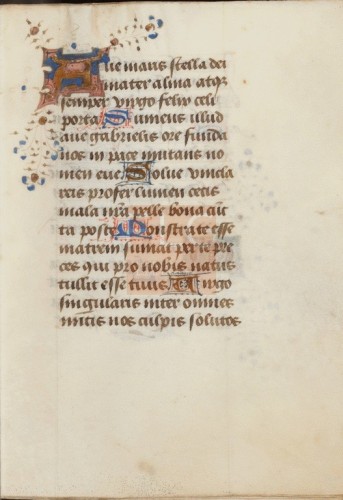 Aue maris stella dei
mater alma atq
semper virgo felix celi
porta Sumens illud
aue gabrielis ore funda
nos in pace mutans no
men eue Solue vincla
reis profer lumen cecis
mala nra pelle bona cūc
ta posce Monstra te esse
matrem sumat per te pre
ces qui pro nobis natus
tullit esse tuus Uirgo
singularis inter omnes
mitis nos culpis solutos